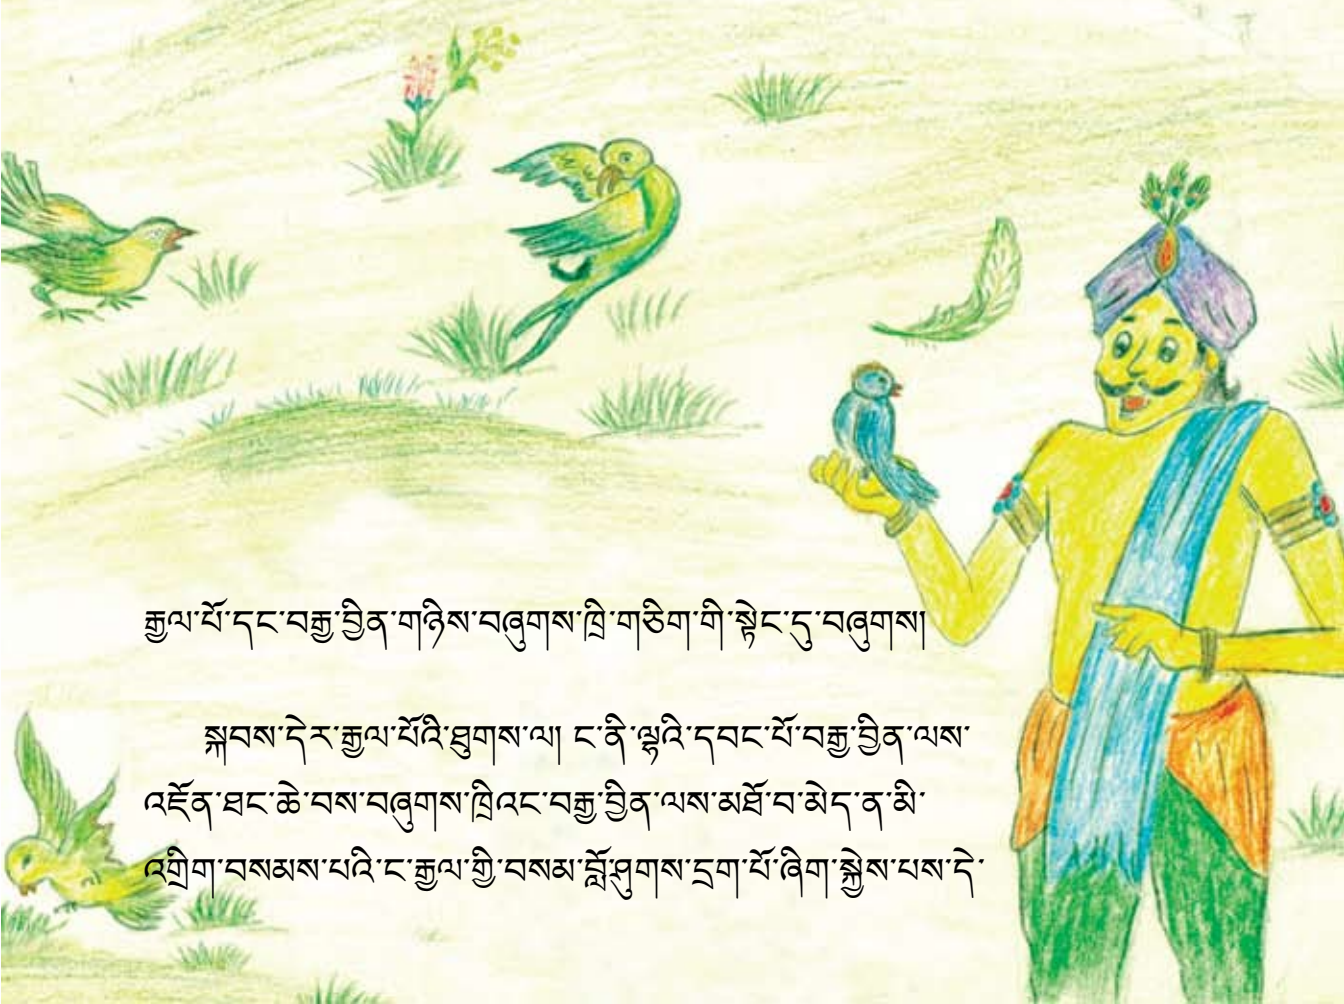 རྒྱལ་པོ་དང་བརྒྱ་བྱིན་གཉིས་བཞུགས་ཁྲི་གཅིག་གི་སྟེང་དུ་བཞུགས།
སྐབས་དེར་རྒྱལ་པོའི་ཐུགས་ལ། ང་ནི་ལྷའི་དབང་པོ་བརྒྱ་བྱིན་ལས་
འཇོན་ཐང་ཆེ་བས་བཞུགས་ཁྲིའང་བརྒྱ་བྱིན་ལས་མཐོ་བ་མེད་ན་མི་
འགྲིག་བསམས་པའི་ང་རྒྱལ་གྱི་བསམ་བློ་ཤུགས་དྲག་པོ་ཞིག་སྐྱེས་པས་དེ་